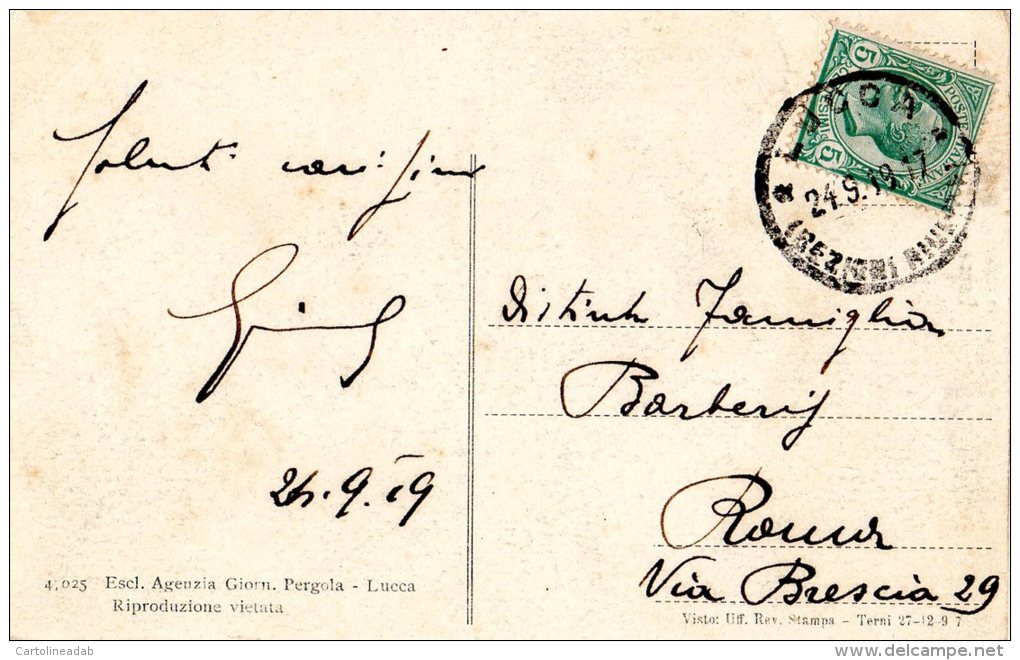 Saluti carissimi
24.9.19
4,025 Escl. Agenzia Giorn. Pergola - Lucca
Riproduzione vietata
5
5
LUCCA
24.9.19.17
Distinta Famiglia
Barberis
Roma
Via Brescia 29
Visto: Uff. Rev. Stampa - Terni 27-12-9 7
Cartolineadab
delcampe.net